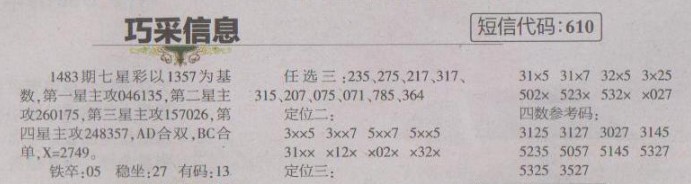 巧采信息
短信代码:610
1483期七星彩以1357为基
数,第一星主攻046135,第二星主
攻260175,第三星主攻157026,第
四星主攻248357,AD合双,BC合
单,X=2749。
铁卒:05 稳坐:27 有码:13
任选三:235、275、217、317、
315、207、075、071、785、364
定位二:
3××5 3××7 5××7 5××5
31×× ×12× ×02× ×32×
定位三:
31×5 31×7 32×5 3×25
502× 523× 532× ×027
四数参考码:
3125 3127 3027 3145
5235 5057 5145 5327
5325 3527